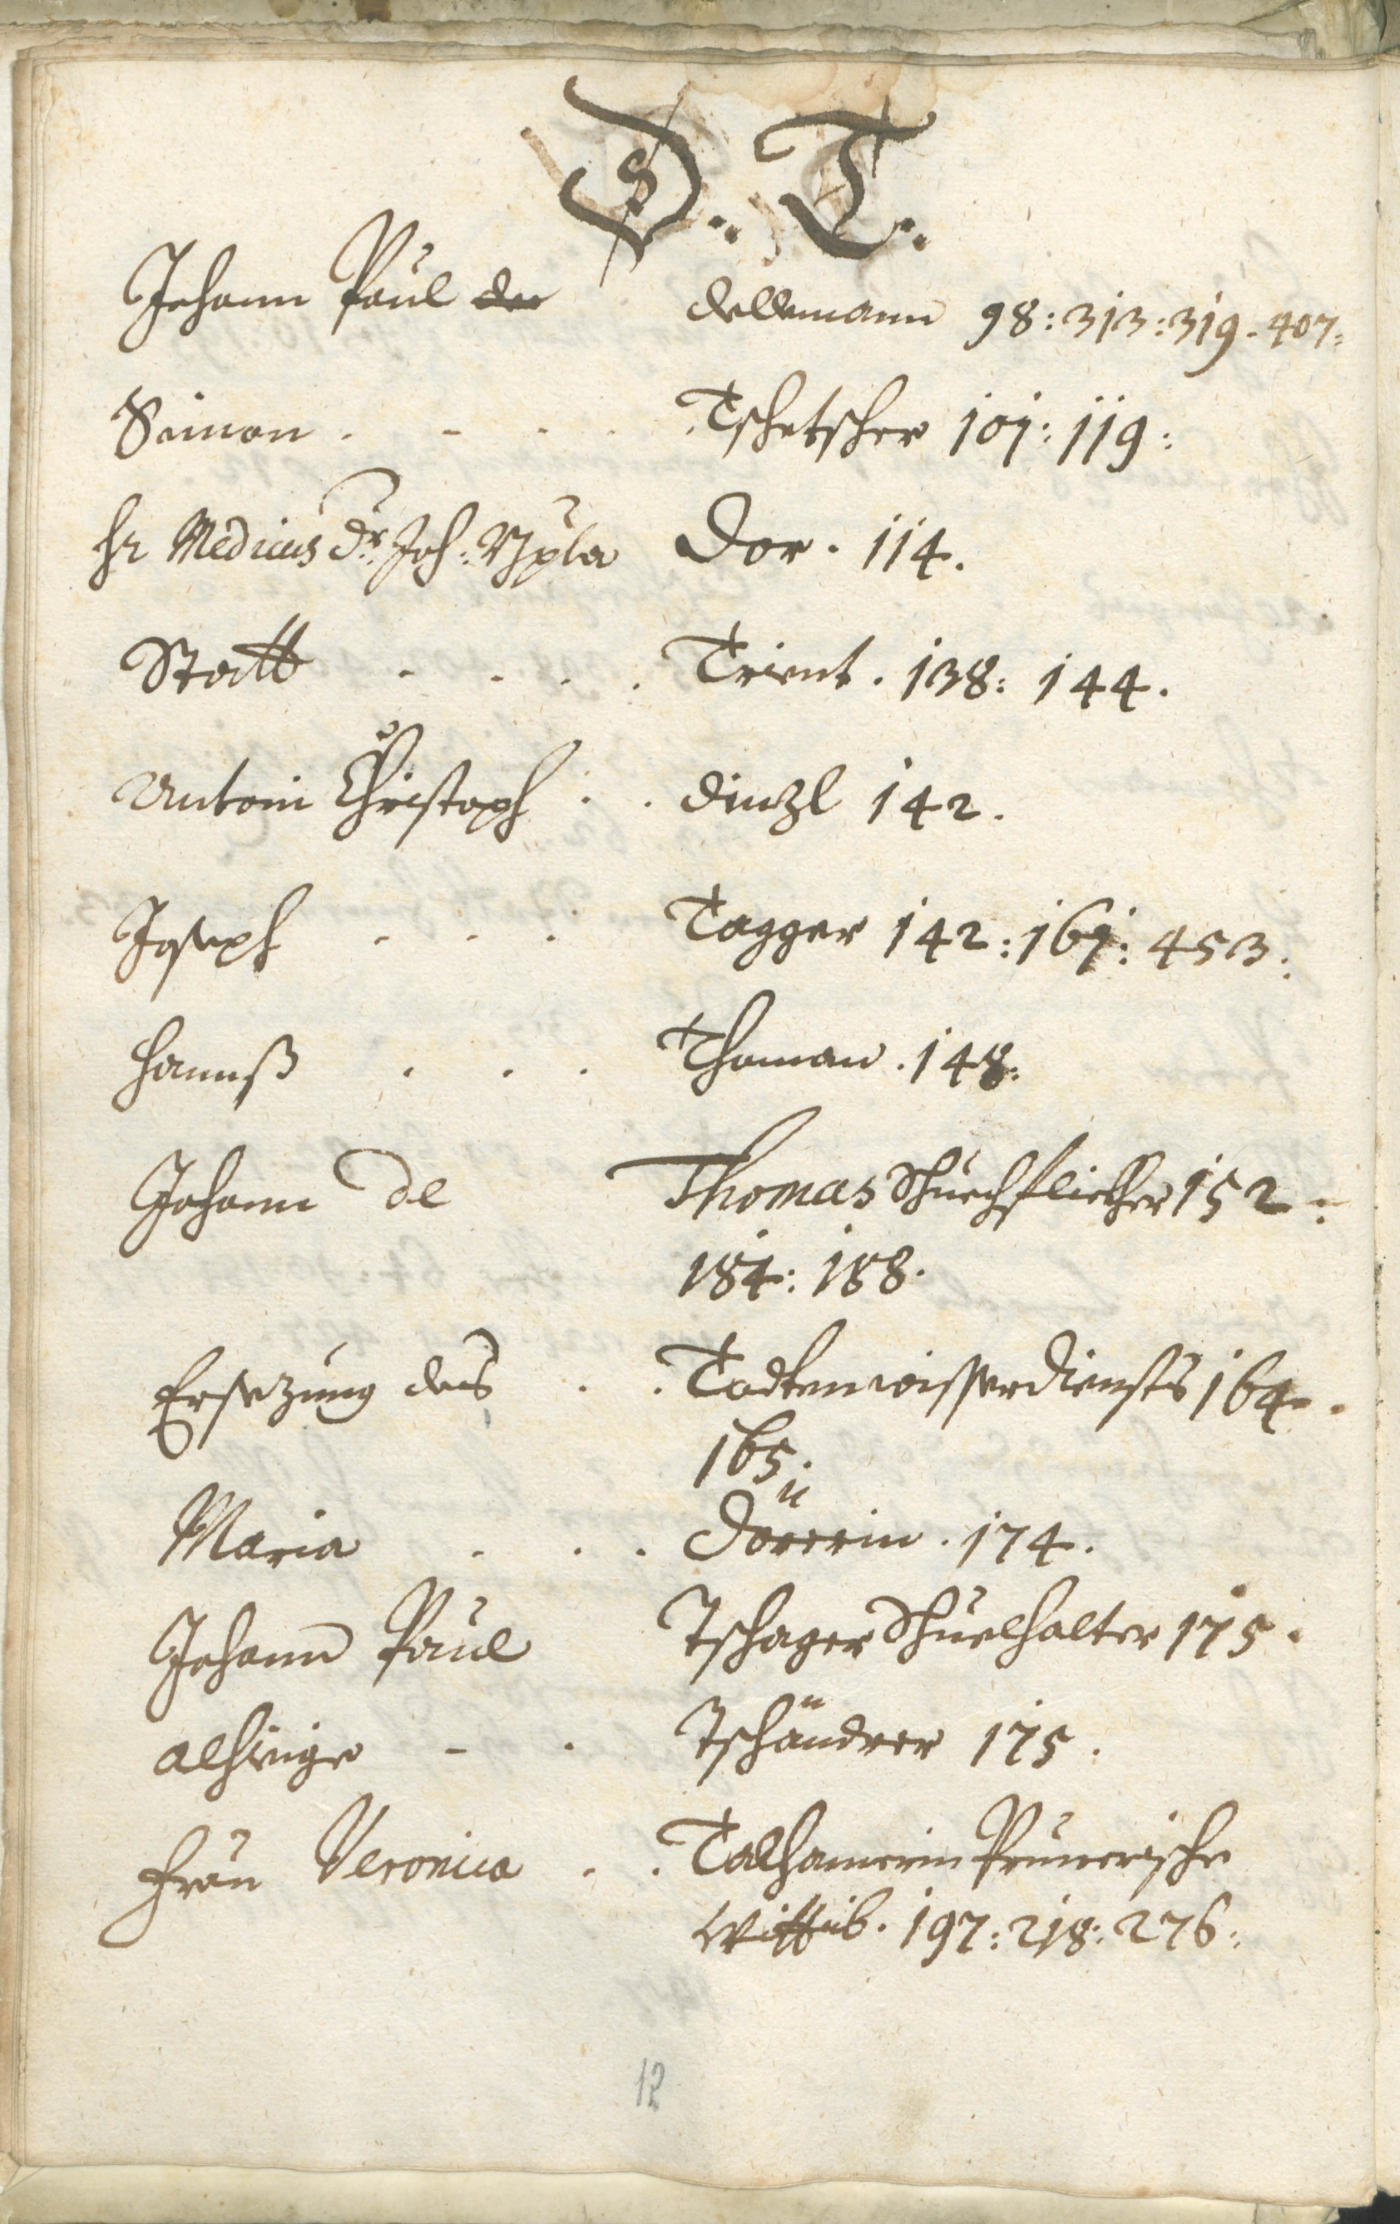 D. T.
Johann Paul der dellemann 98: 313: 319. 407:
Simon . - . . Tschetscher 101: 119:
hr Medicus Dr. Joh: Dor. 114.
Statt . . . . Trient. 138: 144.
Antoni Christoph . . dinzl 142.
Joseph . . . Tagger 142: 161: 453:
Hannß . . . Thoman. 148:
Johann de Thomas Schuechflickher 152:
184: 188.
Ersezung des . . Todtenwisserdiensts 164.
165.
Maria . . . Dörerin. 174.
Johann Paul Tschager Schuelhalter 175.
alhirige - . Tschändrer 175.
Frau Veronica . . Talhamerin Prunerische
Wittib. 197: 218: 276:
12